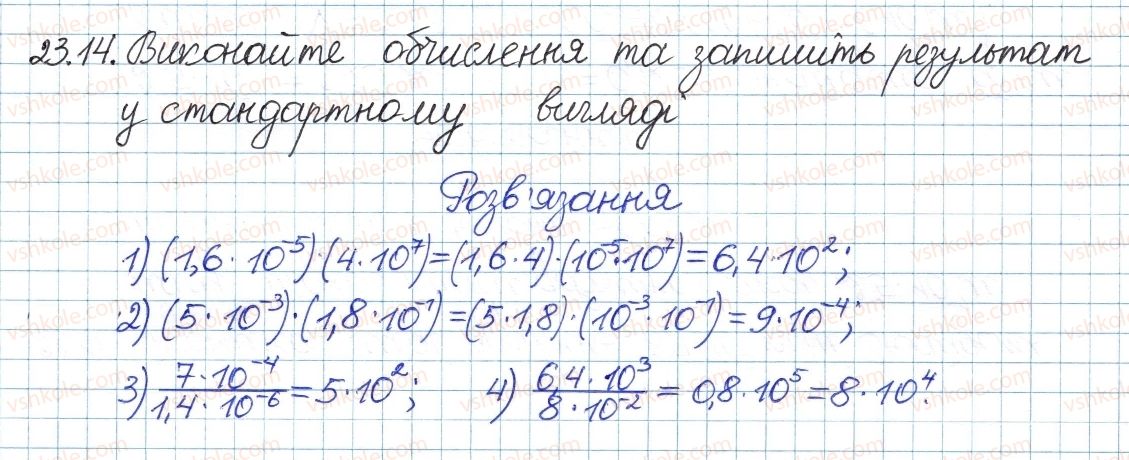 23.14. Виконайте обчислення та запишіть результат
у стандартному вигляді
Розв'язання
1) (1,6 · 10⁻⁵) · (4 · 10⁷) = (1,6 · 4) · (10⁻⁵ · 10⁷) = 6,4 · 10²;
2) (5 · 10⁻³) · (1,8 · 10⁻¹) = (5 · 1,8) · (10⁻³ · 10⁻¹) = 9 · 10⁻⁴;
3) 7 · 10⁻⁴ / 1,4 · 10⁻⁶ = 5 · 10²; 4) 6,4 · 10³ / 8 · 10⁻² = 0,8 · 10⁵ = 8 · 10⁴.
vshkole.com